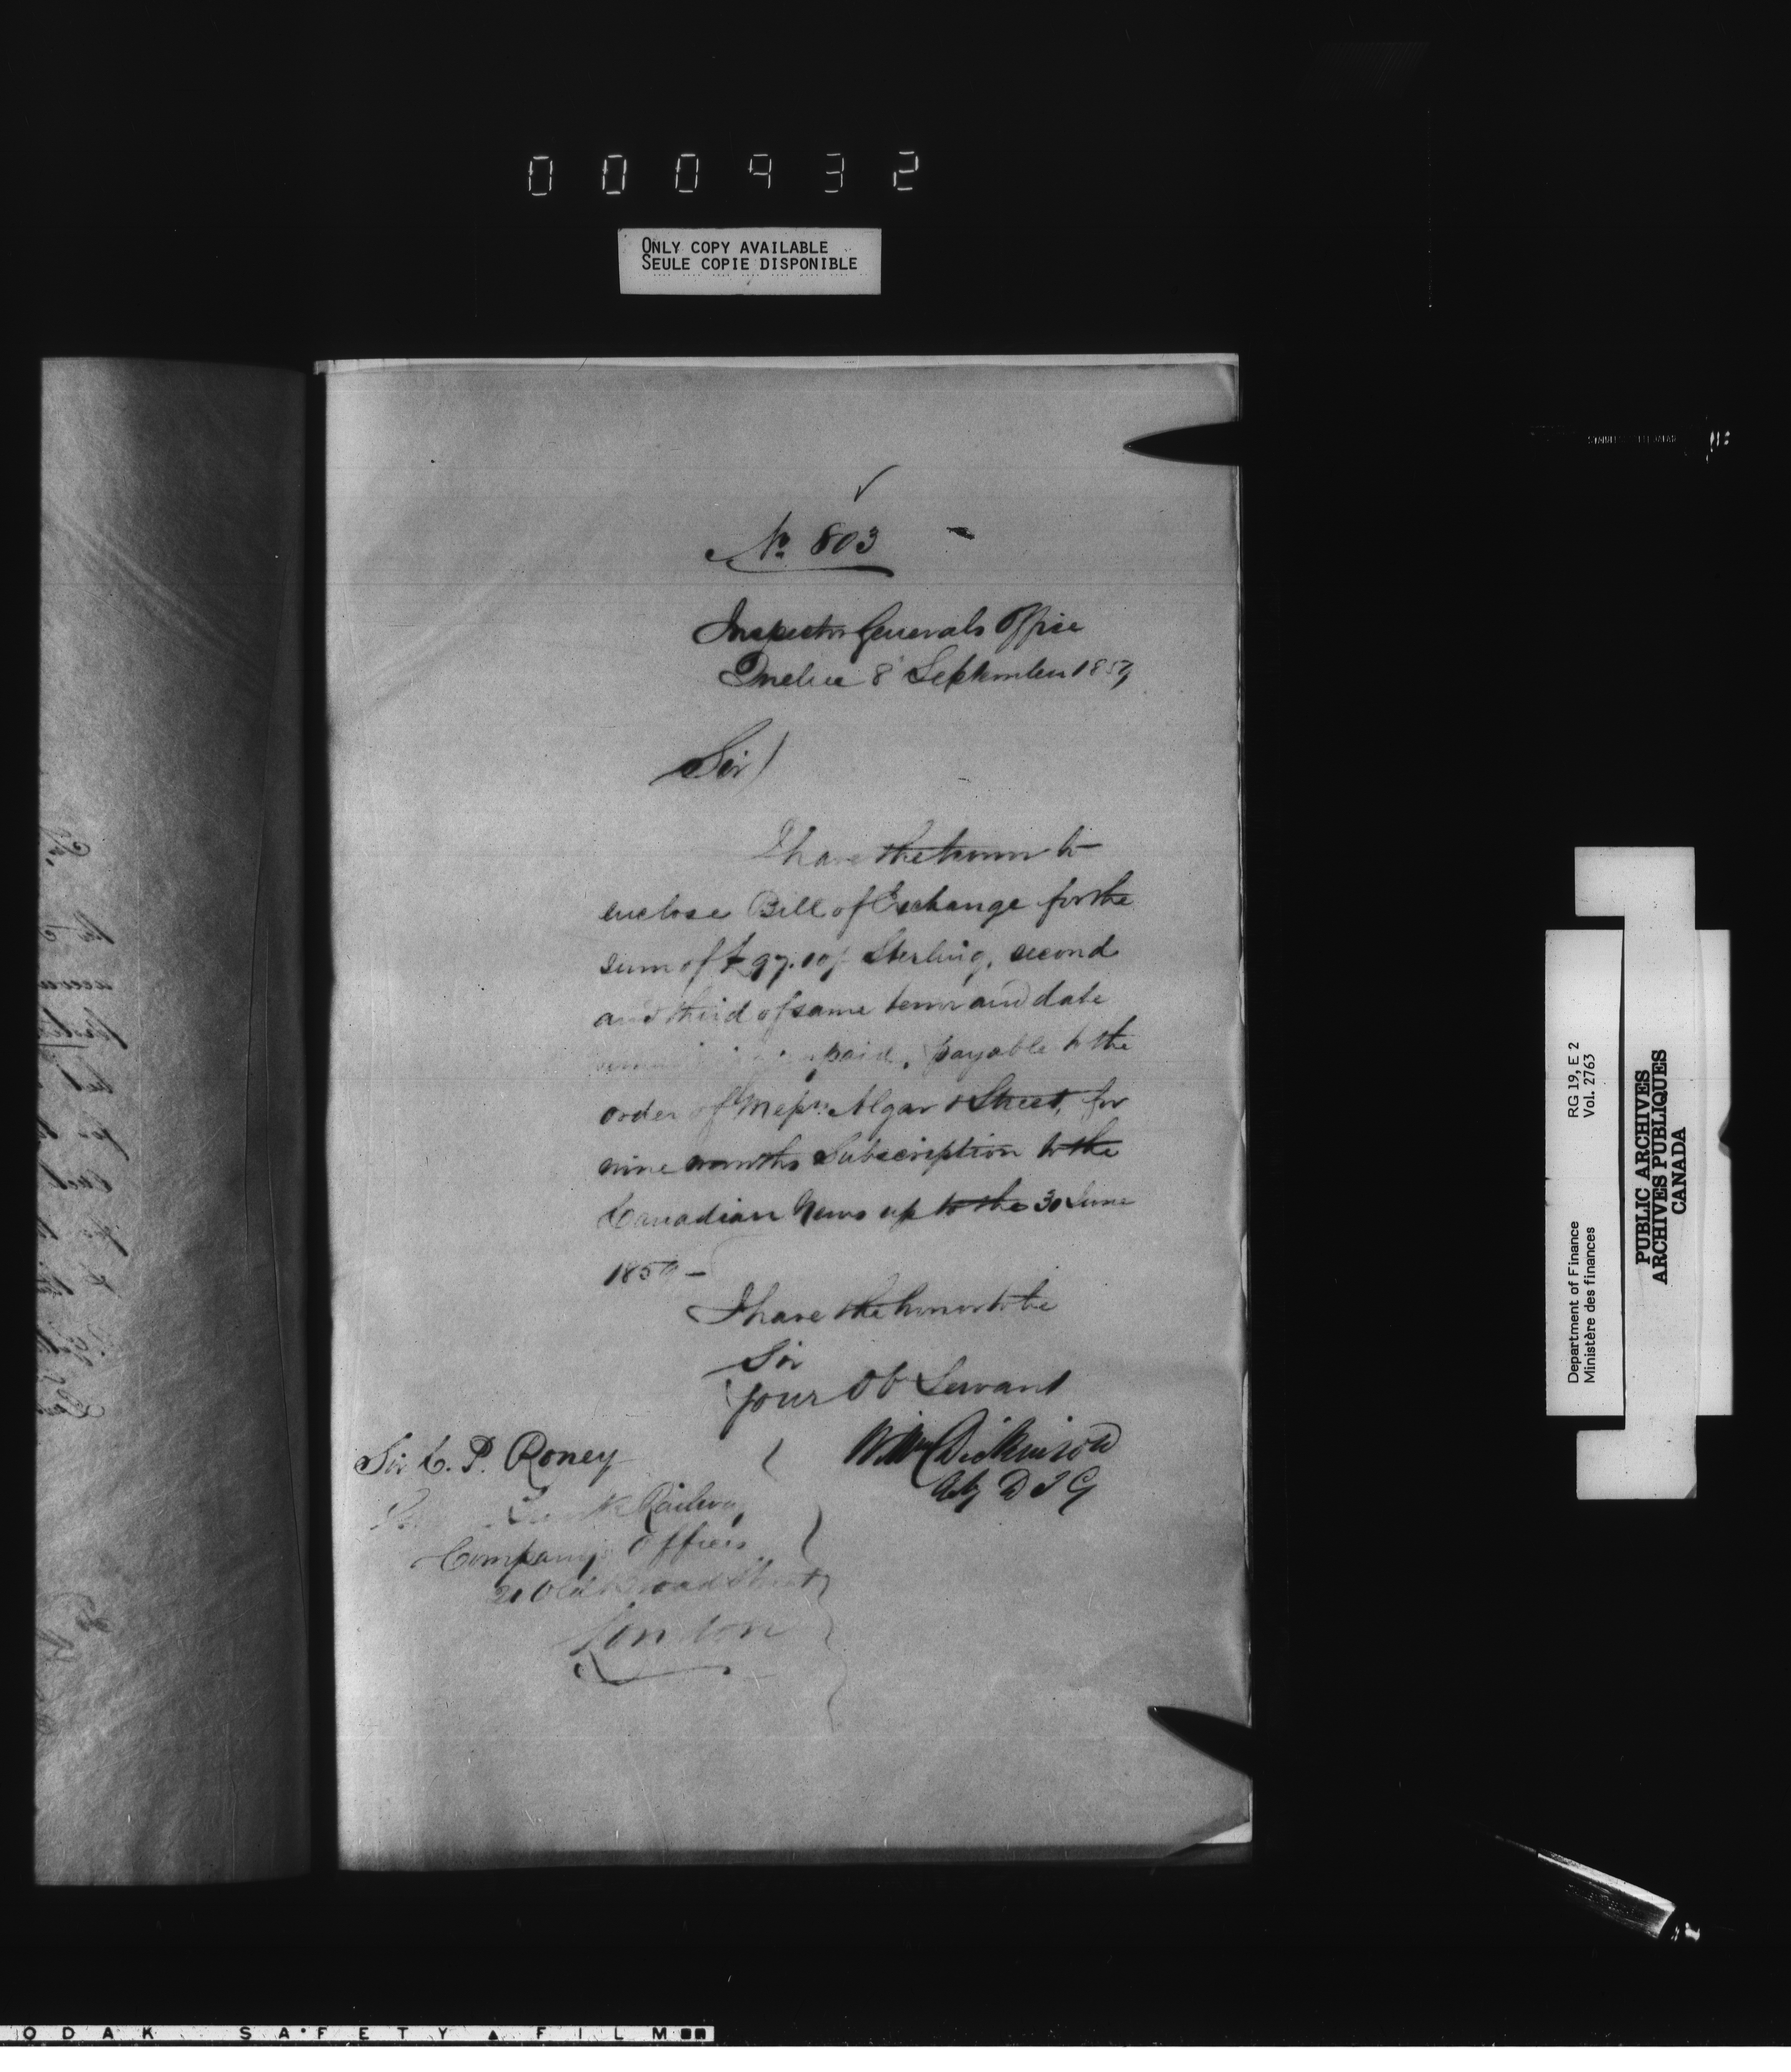 000932
ONLY COPY AVAILABLE
SEULE COPIE DISPONIBLE
No 803
Inspector Generals Office
Quebec 8 September 1859
Sir
I have the honor to
enclose Bill of Exchange for the
sum of £97.10/ Sterling, second
and third of same tenor and date
unpaid, payable to the
order of Messrs Algar & Street, for
nine months Subscription to the
Canadian News up to the 30 June
1859 -
I have the honor to be
Sir
Your Ob Servant
Wm Dickinson
Actg D I G
Sir C. P. Roney
Trunk Railway
Company's Offices
21 Old Broad Street
London
RG 19, E 2
Vol. 2763
Department of Finance
Ministère des finances
PUBLIC ARCHIVES
ARCHIVES PUBLIQUES
CANADA
ODAK SAFETY FILM